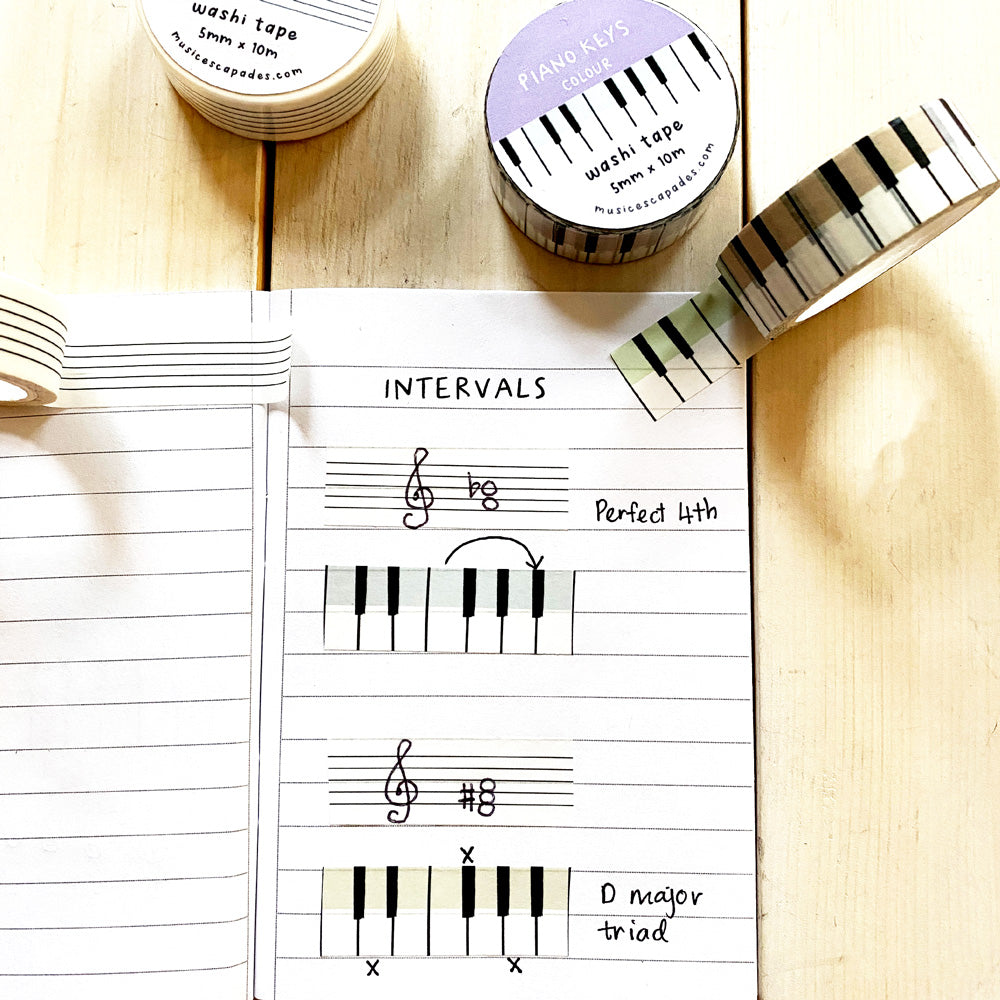 washi tape
5mm x 10m
musicescapades.com
PIANO KEYS
COLOUR
washi tape
5mm x 10m
musicescapades.com
INTERVALS
Perfect 4th
x
D major
triad
x x